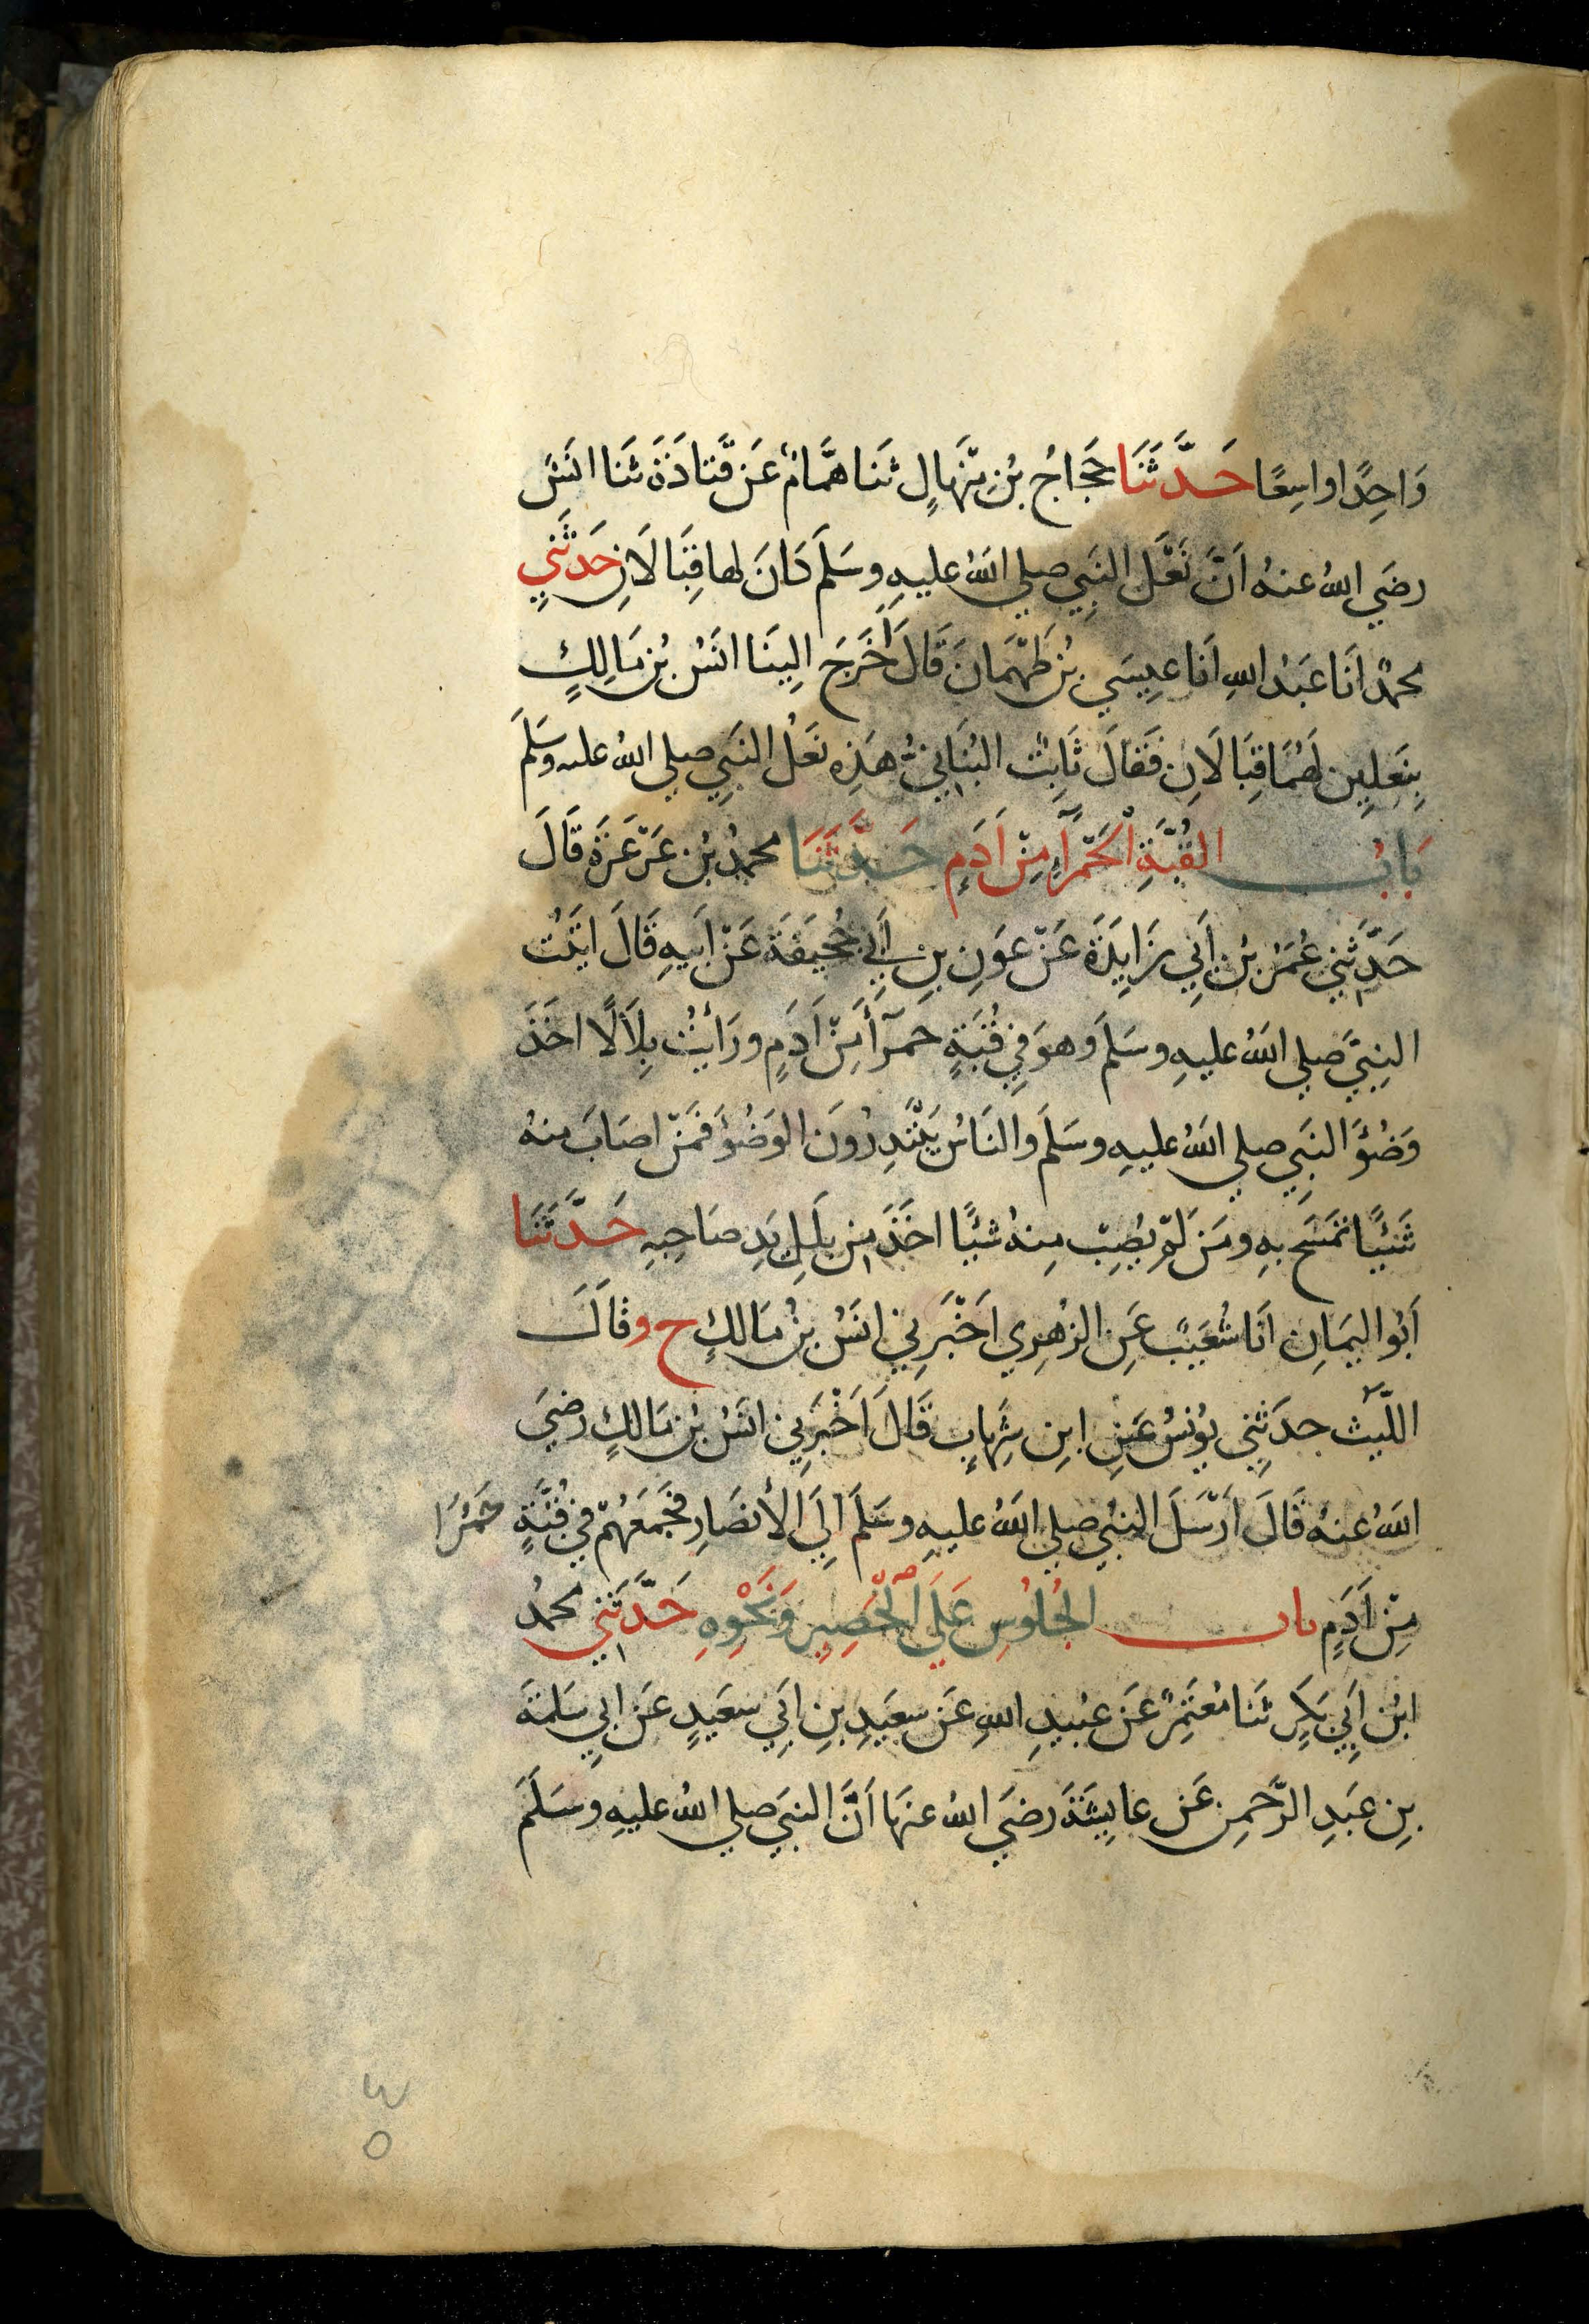 وَاحِدًا واسِعًا حَدَّثَنَا حَجَاجُ بْنِ مِنْهَالٍ ثَنا هَمَّامٌ عَن قَتَادَةَ ثَنا انَسٌ
رضَي اللهُ عنهُ اَنَّ نَعْلَ النَبِي صلي اللهُ عليهِ وسَلَمَ كَانَ لها قِبَالَانِ حَدثَنِي
محمدٌ اَنَا عَبْدُ اللهِ اَنا عيِسَي بْنُ طَهْمَانَ قَالَ أَخْرَجَ اِلِيَنَا انَسُ بْنُ مَالِكٍ
بِنَعلِينِ لَهُمَا قِبَالَانِ فَقَالَ ثَابِتُ البُنَانِيُّ هَذِهِ نَعْلُ النَبِي صلي اللهُ عليه وسَلَمَ
بَابُ القُبَّةِ الْحَمْرَآءِ مِنْ اَدَمٍ حَدَّثَنَا محمدُ بْنُ عَرْعَرَةَ قَالَ
حَدَّثنِي عُمَرُ بْنُ اَبِي زَايِدَةَ عَنْ عَوَنِ بِنِ اَبِي جُحَيفَةَ عَنْ اَبِيهِ قَالَ اتَيْتُ
النبِيَّ صلي اللهُ عليهِ وسَلَمَ وَهوَ فِي قُبَةٍ حَمرَآءَ مِنْ اَدَمٍ ورَاَيْتُ بِلَالًا اخَذَ
وَضُوَءَ النَبِي صلي اللهُ عليهِ وسَلَمَ والنَاسُ يَبْتَدِرُونَ الوَضُوَءَ فَمَنْ اصَابَ منهُ
شَيئًا تمَسَحَ بهِ ومَنْ لَمْ يُصِبْ مِنهُ شَيًا اخَذَ مِن بَلَلِ يَدِ صَاحِبهِ حَدَّثَنَا
اَبُو اليَمَانِ اَنَا شُعَيْبٌ عَنِ الزهرِي اَخْبَرَنِي انَسُ بْنُ مَالكٍ ح وقَالَ
اللَّيْثُ حدَثنِي يوُنسُ عَنِ ابنِ شِهابٍ قَالَ اَخْبَرَنِي انَسُ بْنُ مَالكٍ رضِيَ
اللهُ عنهُ قَالَ اَرْسَلَ النبِي صلي اللهُ عليهِ وسَلمَ اِلَي الأنصَارِ فجَمَعَهُمْ في قُبَّةٍ حَمْرَا
مِنْ اَدَمٍ باب الجُلوُسِ عَلَي الْحَصِيرِ وَنَحْوِهِ حَدَّثَنِي محمدُ
ابْن اَبِي بَكرٍ ثَنا مُعْتَمِرٌ عَن عُبيدِ اللهِ عَن سعَيدِ بنِ ابَي سعَيدٍ عَن ابِي سَلمَةَ
بِنِ عَبدِ الرَّحمنِ عَن عايشَةَ رضَي اللهُ عنهَا اَنَّ النبيَ صلي اللهُ عليهِ وسَلَمَ